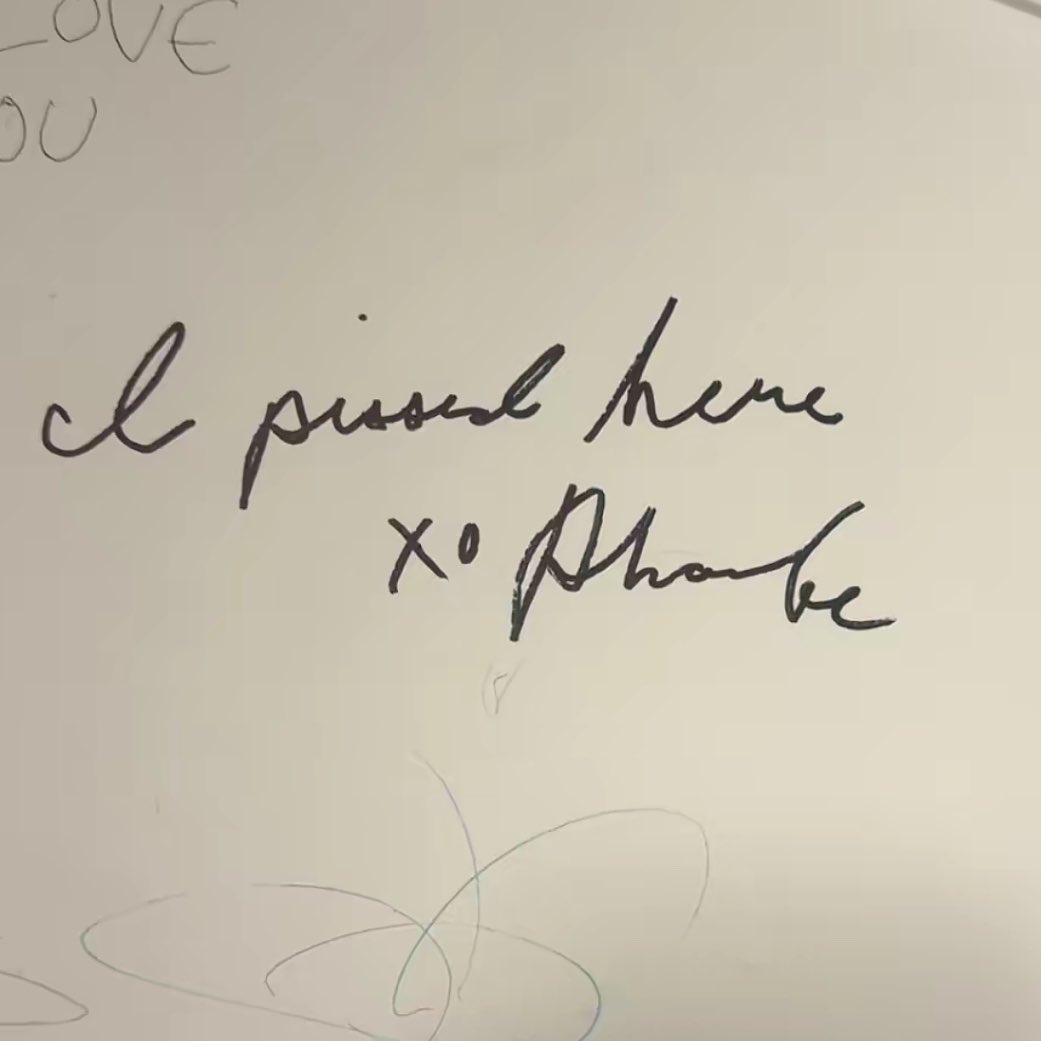 LOVE
OU
I pissed here
xo Phoebe